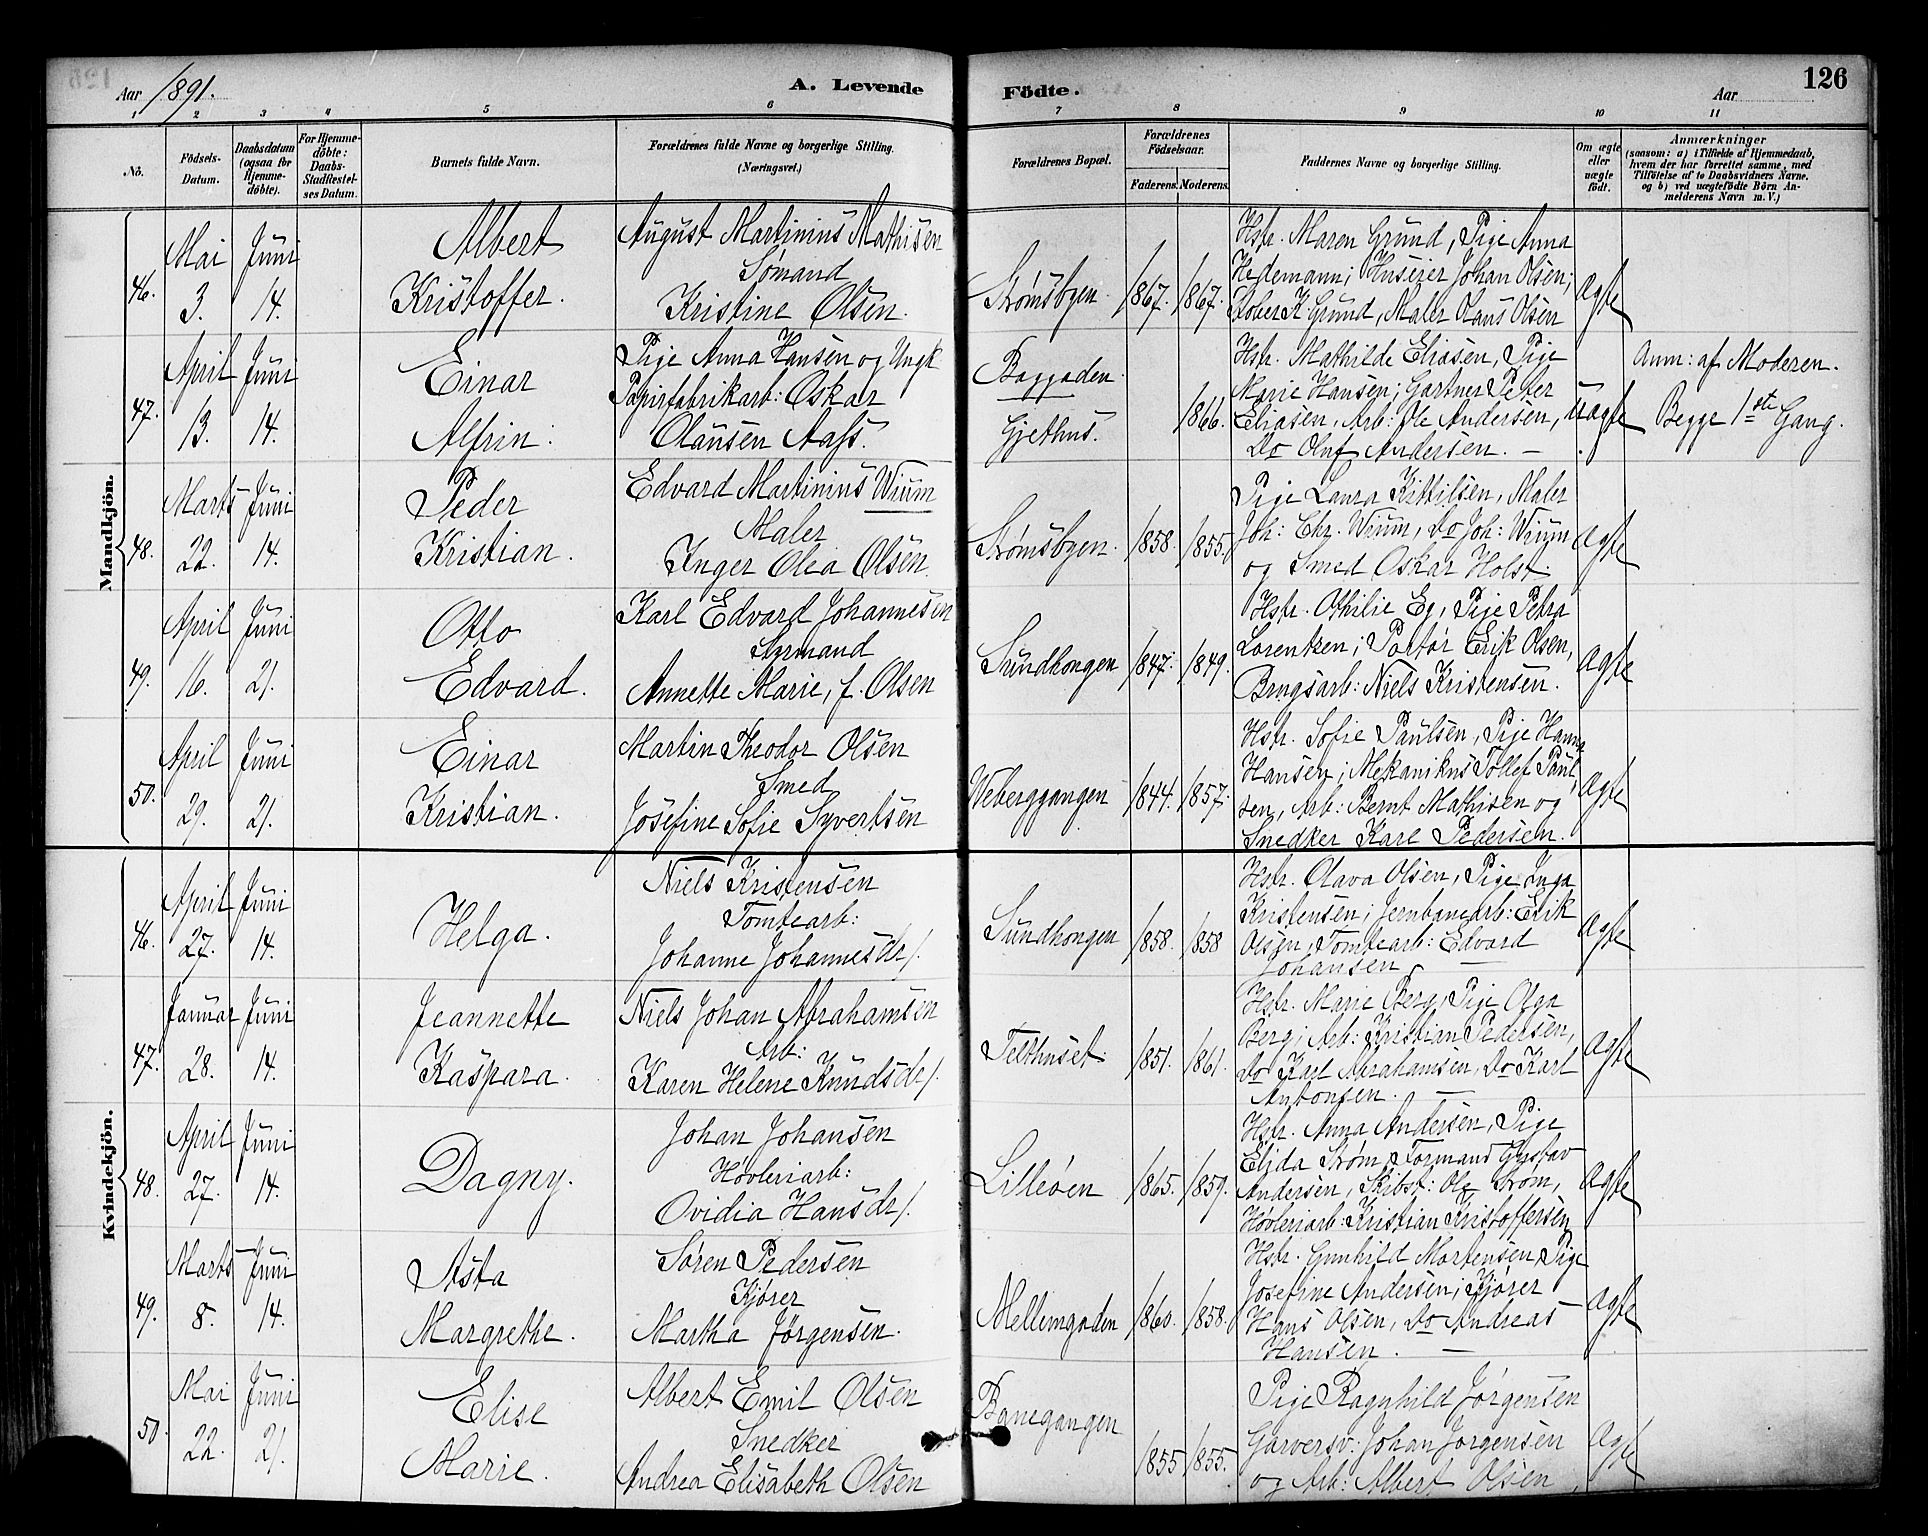 Aar 1891. A. Levende Födte. Aar 126
1 2 3 4 5 6 7 8 9 10 11
No.
Födsels-Datum.
Daabsdatum (ogsaa for Hjemme-döbte).
For Hjemme-döbte: Daabs-Stadfæstel-ses Datum.
Barnets fulde Navn.
Forældrenes fulde Navne og borgerlige Stilling. (Næringsvei.)
Forældrenes Bopæl.
Forældrenes Födselsaar.
Faderens. Moderens.
Faddernes Navne og borgerlige Stilling.
Om ægte eller uægte födt.
Anmærkninger
(saasom: a) i Tilfælde af Hjemmedaab,
hvem der har forrettet samme, med
Tilföielse af to Daabsvidners Navne,
og b) ved uægtefödte Börn An-
melderens Navn m. V.)
Mandkjön.
46. Mai 3. Juni 14.
Albert
Kristoffer.
August Martinius Mathisen
Sømand
Kristine Olsen.
Strømsbyen. 1867. 1867.
Hstr. Maren Grund, Pige Anna
Hedemann; Huseier Johan Olsen;
Grund, Maler Olaus Olsen
Ægte
47. April 13. Juni 14.
Einar
Alfrin.
Pige Anna Hansen og Ungk
Papirfabrikarb: Oskar
Olausen Aass.
Baggaden.
Gjethus.
1866.
Hstr. Mathilde Eliasen, Pige
Marie Hansen; Gartner Peter
Eliasen, Arb: Ole Andersen,
Do Oluf Andersen. —
uægte
Anm: af Moderen.
Begge 1ste Gang.
48. Marts 22. Juni 14.
Peder
Kristian.
Edvard Martinius Wium
Maler
Inger Olea Olsen.
Strømsbyen. 1858. 1855.
Pige Laura Kittilsen, Maler
Joh: Chr. Wium, Do Joh: Wium
og Smed Oskar Holst.
Ægte
49. April 16. Juni 21.
Otto
Edvard.
Karl Edvard Johannesen
Styrmand
Annette Marie, f. Olsen
Sundhougen 1847. 1849.
Hstr. Othilie Eg, Pige Petra
Lorentzen; Portør Erik Olsen,
Brugsarb: Niels Kristensen.
Ægte
50. April 29. Juni 21.
Einar
Kristian.
Martin Theodor Olsen
Smed
Josefine Sofie Syvertsen
Weberggangen 1844. 1857.
Hstr. Sofie Paulsen, Pige Hanna
Hansen; Mekanikus Tollef Paul,
sen, Arb: Bernt Mathisen og
Snedker Karl Pedersen.
Ægte
Kvindekjön.
46. April 27. Juni 14.
Helga.
Niels Kristensen
Tomtearb:
Johanne Johannesdr/.
Sundhougen 1858. 1858
Hstr. Olava Olsen, Pige Inga
Kristensen; Jernbanearb: Erik
Olsen, Tomtearb: Edvard
Johansen —
Ægte
47. Januar 28. Juni 14.
Jeannette
Kaspara.
Niels Johan Abrahamsen
Arb:
Karen Helene Knudsdr/.
Telthuset. 1851. 1861.
Hstr. Marie Berg, Pige Olga
Berg; Arb: Kristian Pedersen,
Do Karl Abrahamsen, Do Karl
Antonsen. —
Ægte
48. April 27. Juni 14.
Dagny.
Johan Johansen
Høvleriarb:
Ovidia Hansdr/.
Lilleøen 1865. 1859.
Hstr. Anna Andersen, Pige
Elida Strøm; Formand Gustav
Andersen, Skibst: Ole Strøm,
Høvleriarb: Kristian Kristoffersen
Ægte
49. Marts 8. Juni 14.
Asta
Margrethe.
Søren Pedersen
Kjører
Martha Jørgensen.
Mellemgaden 1860. 1858.
Hstr. Gunhild Mortensen, Pige
Josefine Andersen; Kjører
Hans Olsen, Do Andreas
Hansen. —
Ægte
50. Mai 22. Juni 21.
Elise
Marie.
Albert Emil Olsen
Snedker
Andrea Elisabeth Olsen
Banegangen
1855 1855.
Pige Ragnhild Jørgensen
Garversv: Johan Jørgensen
og Arb: Albert Olsen
Ægte